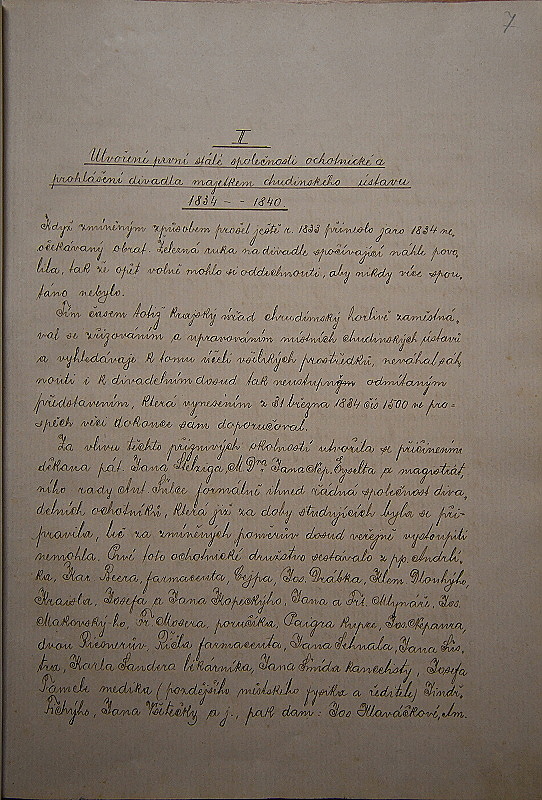 7
II
Utvoření první stálé společnosti ochotnické a
prohlášení divadla majetkem chudinského ústavu
1834 - - 1840.
Když zmíněným způsobem prošel ještě r. 1833 přineslo jaro 1834 ne,
očekávaný obrat. Železná ruka na divadle spočívající náhle povo,
lila, tak že opět volně mohlo si oddechnouti, aby nikdy více spou,
táno nebylo.
Tím časem totiž Krajský úřad chrudimský horlivě zaměstná,
val se zřizováním a upravováním místních chudinských ústavů
a vyhledávaje k tomu účeli všelikých prostředků, neváhal sáh,
nouti i k divadelním dosud tak neústupným odmítaným
představením, která vynesením z 31 března 1834 čís 1500 ve pro-
spěch věci dokonce sám doporučoval.
Za vlivu těchto příznivých okolností utvořila se přičiněním
děkana pát. Jana M Dra Jana Nep. Eyselta a magistrát,
ního rady Ant. Šulce formálně ihned řádná společnost diva,
delních ochotníků, která již za doby studujících byla se při-
pravila, leč za zmíněných poměrův dosud veřejně vystoupiti
nemohla. První toto ochotnické družstvo sestávalo z pp. Andrlí-
ka, Kar. Beera, farmaceuta, Cejpa, Jos. Drábka, Klem Dlouhýho,
Kraisla, Josefa a Jana Kopeckýho, Jana a Fr. Mlynáře, Jos.
Makovský-ho, Fr. Mosera, poručíka, Paigra kupce, Jos.
dvou Riesnerův, farmaceuta, Jana Sehnala, Jana Šís,
tra, Karla Šandera lékárníka, Jana Šmída kancelisty, Josefa
Tamele medika (pozdějšího městského fysika a ředitele) Jindř.
Tichýho, Jana Všetečky a j., pak dam: Jos Hlaváčkové, Am.